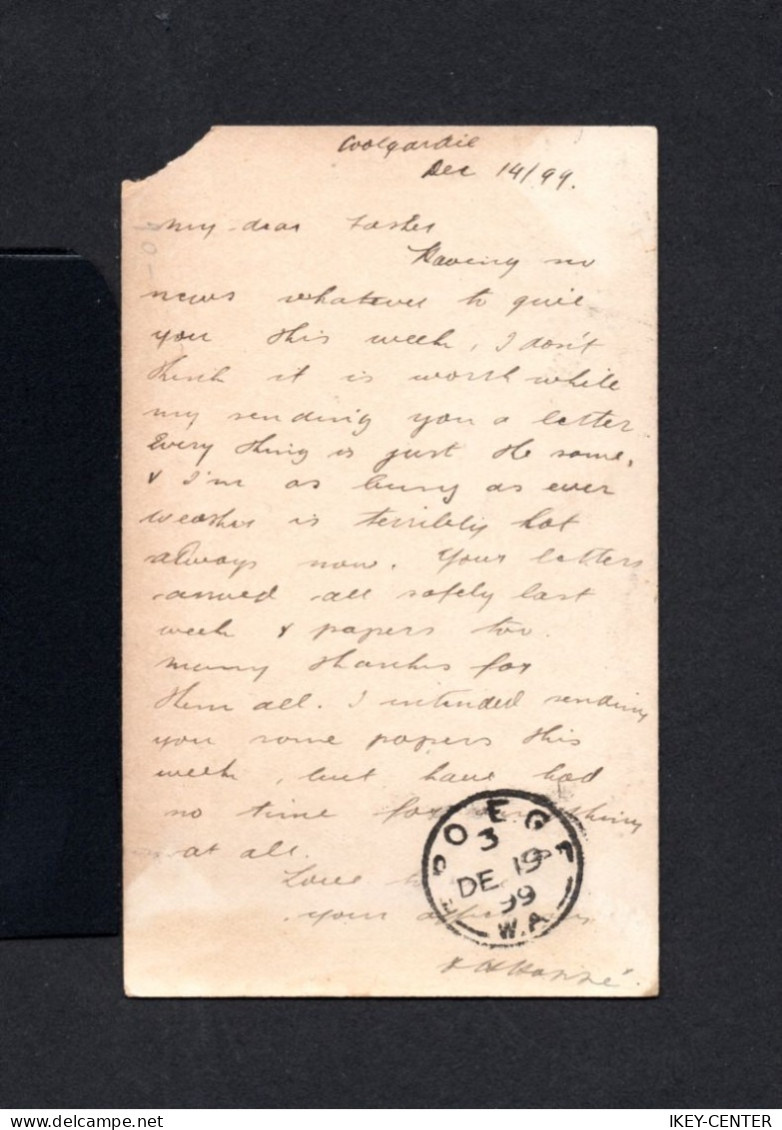 Coolgardie
Dec 14/99.
My dear Father
Having no
news whatever to give
you this week, I don't
think it is worth while
my sending you a letter
Every thing is just the same,
& I'm as busy as ever
weather is terribly hot
always now. Your letters
arrived all safely last
week & papers too.
many thanks for
them all. I intended sending
you some papers this
week, but have had
no time for
at all.
Love
your
3
DE 19
99
W.A
www.delcampe.net
IKEY-CENTER